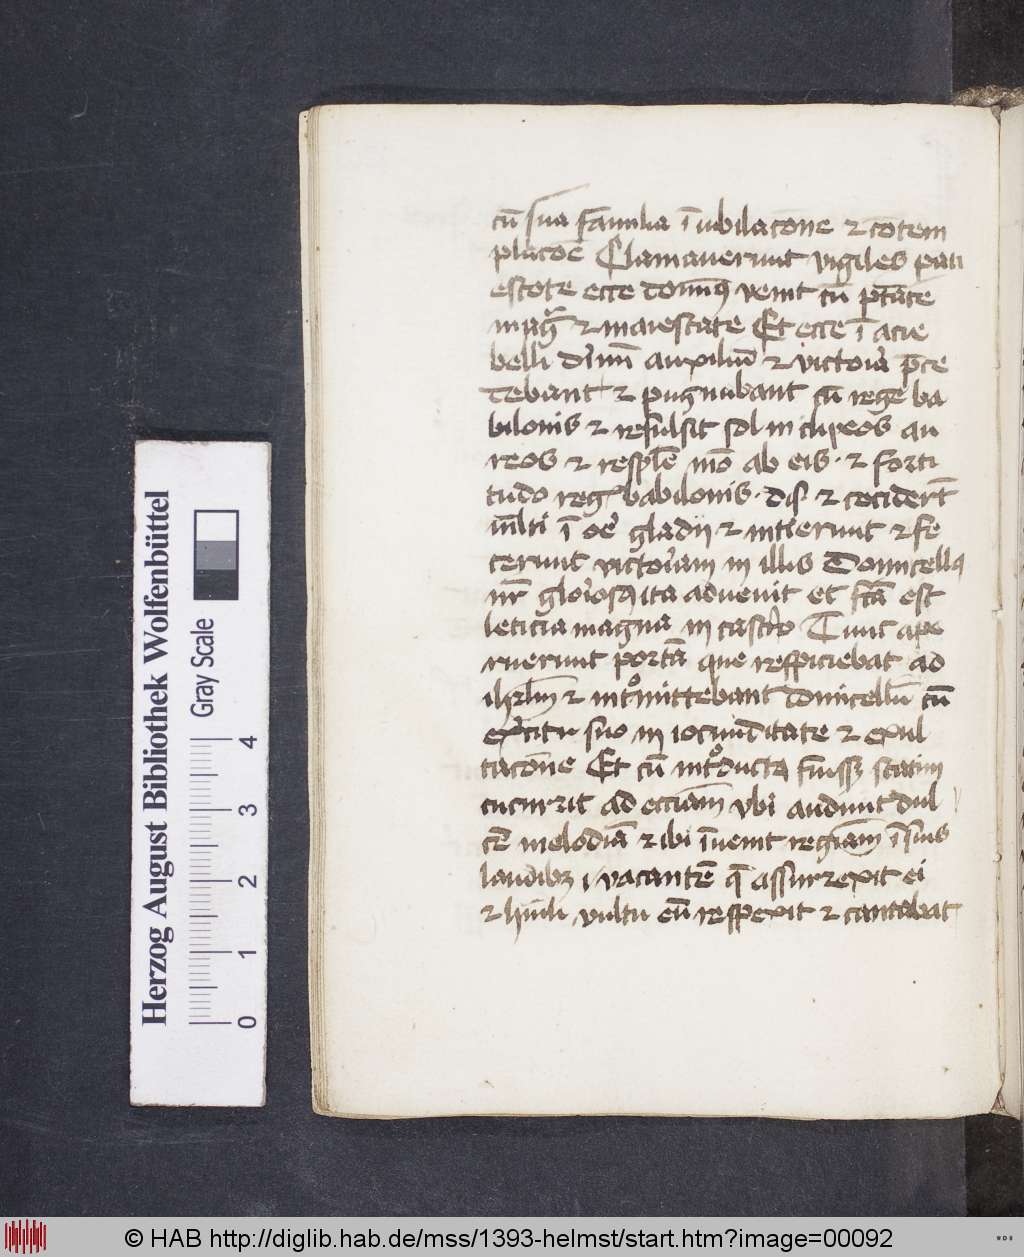 cū sua familia ī iubilacōne ⁊ cōtem
placōe Clamauerunt vigiles pati
estote ecce dominꝰ venit cū ptāte
magᷓ ⁊ maiestate Et ecce ī acie
belli diuinū auxiliū ⁊ victoīa p̄ce
debant ⁊ pugnabant cū rege ba
bilonis ⁊ refulsit sol in clipeos au
reos ⁊ resplē ab eis · ⁊ forti
tudo reg babilonis · dis ⁊ cecidert̄
ml̄ti ī oē gladij ⁊ intierunt ⁊ fe
cerunt victoiam in illis Domicellꝰ
nr̄ gloiosꝰ ita aduenit et fcā est
leticia magna in castro Tunc ape
ruerunt portā que respiciebat ad
ihrl̄m ⁊ intᷓomittebant domicellū cū
exc̓itu suo in iocunditate ⁊ exul
tacōne Et cū intᷓoductꝰ fuissꝫ statim
cucurrit ad eccīam vbi audiuit dul
cē melodiā ⁊ ibi īuenit reginam ī suis
laudibꝫ vacantē q̄ assurrexit ei
⁊ hūili vultu eū respexit ⁊ cantabat
Herzog August Bibliothek Wolfenbüttel
Gray Scale
0 1 2 3 4
© HAB http://diglib.hab.de/mss/1393-helmst/start.htm?image=00092